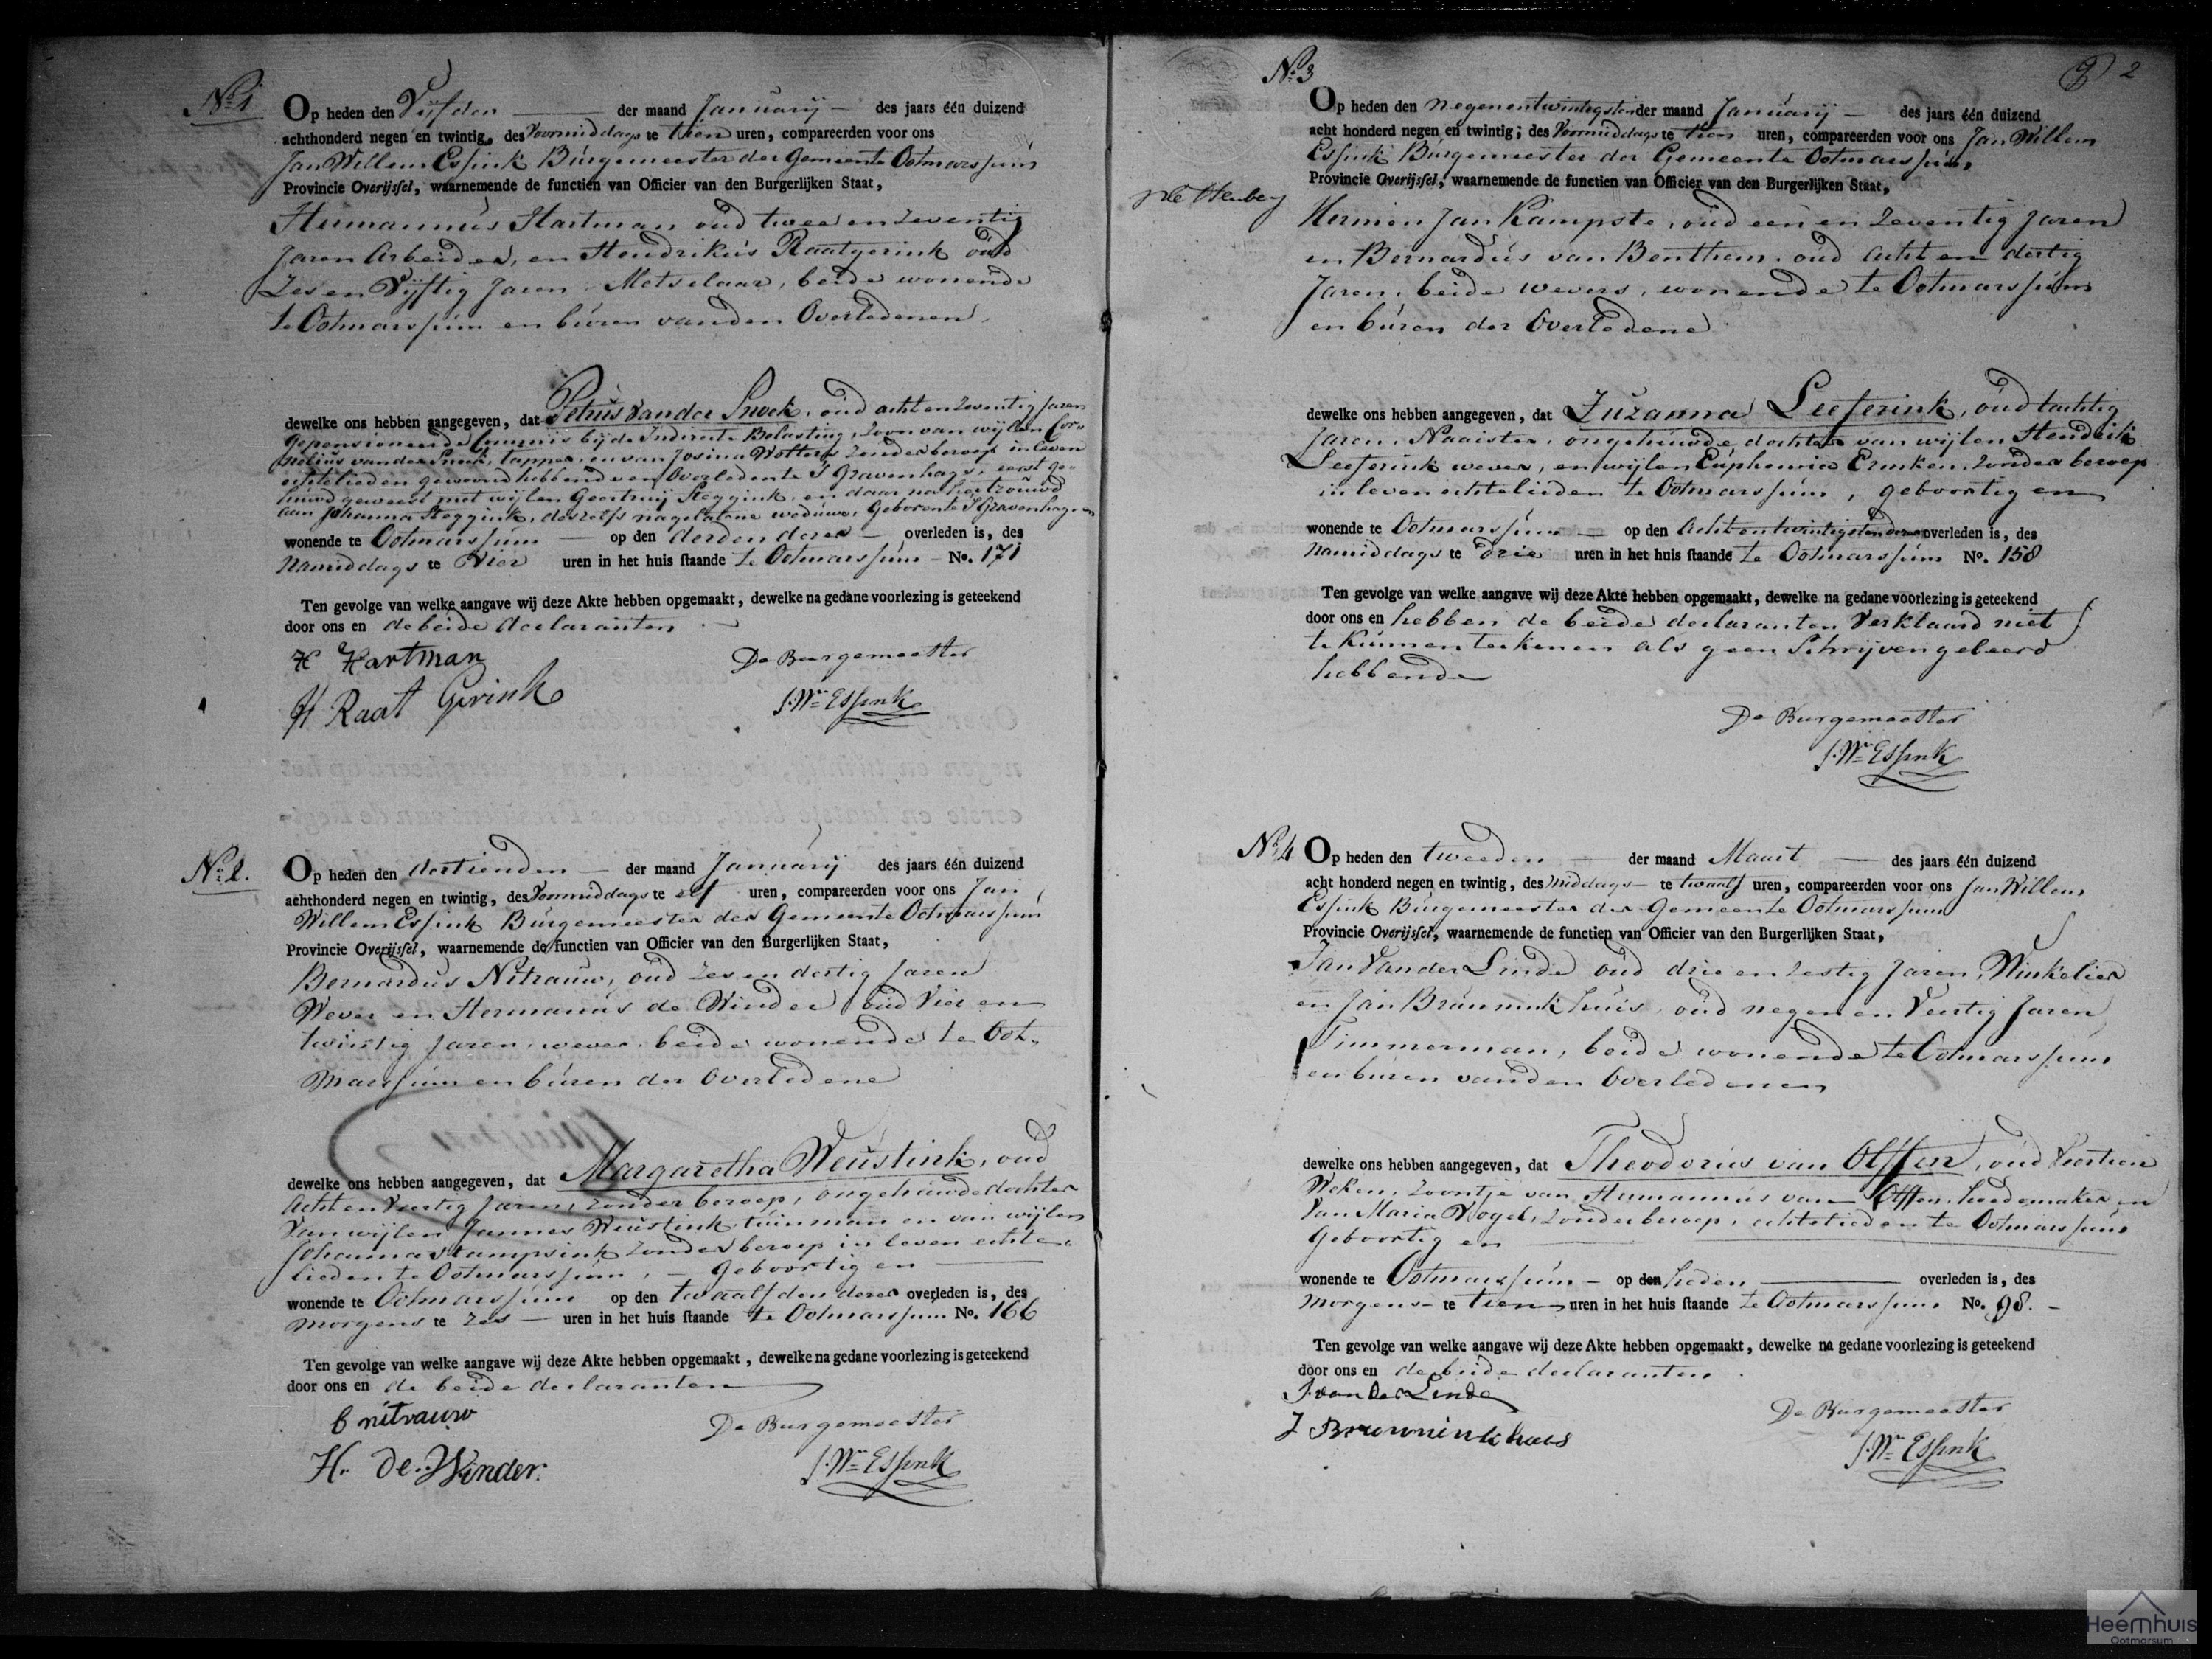 No. 1
Op heden den Vijfden der maand Januarij des jaars één duizend
achthonderd negen en twintig, des Voormiddags te tien uren, compareerden voor ons
Jan Willem Essink Burgemeester der Gemeente Ootmarssum
Provincie Overijssel, waarnemende de functien van Officier van den Burgerlijken Staat,
Hermannus Hartman oud twee en zeventig
Jaren Arbeider, en Hendrikus Raatgerink oud
Zes en Vijftig Jaren Metselaar, beide wonende
te Ootmarssum en buren van den Overledenen,
dewelke ons hebben aangegeven, dat Petrus van der Snoek, oud acht en zeventig Jaren
Gepensioneerde Commis bij de Indirecte Belasting, Zoon van wijlen Cor-
nelius van der Snoek, tapper, en van Josina Wolters zonder beroep in leven
echtelieden gewoond hebbend en Overleden te S Gravenhage, eerst ge-
huwd geweest met wijlen Geertruij Steggink, en daar na hertrouwd
aan Johanna Steggink, deszelfs nagelatene weduwe, Geboren te S Gravenhage en
wonende te Ootmarssum op den derden derer overleden is, des
Namiddags te Vier uren in het huis staande te Ootmarssum No. 171
Ten gevolge van welke aangave wij deze Akte hebben opgemaakt, dewelke na gedane voorlezing is geteekend
door ons en de beide declaranten
H Hartman
De Burgemeester
H Raat Gerink
J. Wm Essink
No. 2.
Op heden den dertienden der maand Januarij des jaars één duizend
achthonderd negen en twintig, des Voormiddags te elf uren, compareerden voor ons Jan
Willem Essink Burgemeester der Gemeente Ootmarssum
Provincie Overijssel, waarnemende de functien van Officier van den Burgerlijken Staat,
Bernardus Nitrauw, oud zes en dertig Jaren
Wever en Hermannus de Winder oud Vier en
twintig Jaren, wever, beide wonende te Oot-
marssum en buren der Overledene
dewelke ons hebben aangegeven, dat Margaretha Weustink, oud
Acht en Veertig Jaren, zonder beroep, ongehuwde dochter
Van wijlen Jannes Weustink tuinman en van wijlen
Johanna Kampsink zonder beroep in leven echte-
lieden te Ootmarssum, Geboortig en
wonende te Ootmarssum op den twaalfden derer overleden is, des
Morgens te zes uren in het huis staande te Ootmarssum No. 166
Ten gevolge van welke aangave wij deze Akte hebben opgemaakt, dewelke na gedane voorlezing is geteekend
door ons en de beide declaranten
B nitrauw
De Burgemeester
H. de. Winder.
J. Wm Essink
2
No. 3
Op heden den negenentwintigsten der maand Januarij des jaars één duizend
acht honderd negen en twintig; des Voormiddags te tien uren, compareerden voor ons Jan Willem
Essink Burgemeester der Gemeente Ootmarssum,
Provincie Overijssel, waarnemende de functien van Officier van den Burgerlijken Staat,
Hermen Jan Kampste, oud een en zeventig Jaren
en Bernardus van Benthem, oud acht en dertig
Jaren, beide wevers, wonende te Ootmarssum
en buren der Overledene
dewelke ons hebben aangegeven, dat Zuzanna Leeferink, oud tachtig
Jaren, Naaister, ongehuwde dochter van wijlen Hendrik
Leeferink wever, en wijlen Euphemia Ermken, zonder beroep
in leven echtelieden te Ootmarssum, geboortig en
wonende te Ootmarssum op den Acht en twintigsten derer overleden is, des
Namiddags te drie uren in het huis staande te Ootmarssum No. 158
Ten gevolge van welke aangave wij deze Akte hebben opgemaakt, dewelke na gedane voorlezing is geteekend
door ons en hebben de beide declaranten Verklaard niet
te kunnen teekenen als geen Schrijven geleerd
hebbende
De Burgemeester
J. Wm Essink
No. 4
Op heden den tweeden der maand Maart des jaars één duizend
acht honderd negen en twintig, des middags te twaalf uren, compareerden voor ons Jan Willem
Essink Burgemeester der Gemeente Ootmarssum
Provincie Overijssel, waarnemende de functien van Officier van den Burgerlijken Staat,
Jan van der Linde oud drie en zestig Jaren, Winkelier
en Jan Braunninkhuis, oud negen en Veertig Jaren
Timmerman, beide wonende te Ootmarssum
en buren van den Overledenen
dewelke ons hebben aangegeven, dat Theodorus van Olffen, oud Veertien
Weken, zoontje van Hermannus van Olffen, hoedemaker, en
Van Maria Vogel, zonder beroep, echtelieden te Ootmarssum
Geboortig en
wonende te Ootmarssum op den heden overleden is, des
Morgens te tien uren in het huis staande te Ootmarssum No. 98.
Ten gevolge van welke aangave wij deze Akte hebben opgemaakt, dewelke na gedane voorlezing is geteekend
door ons en de beide declaranten
J. van der Linde
De Burgemeester
J Brunninkhuis
J. Wm Essink
Heemhuis
Ootmarsum